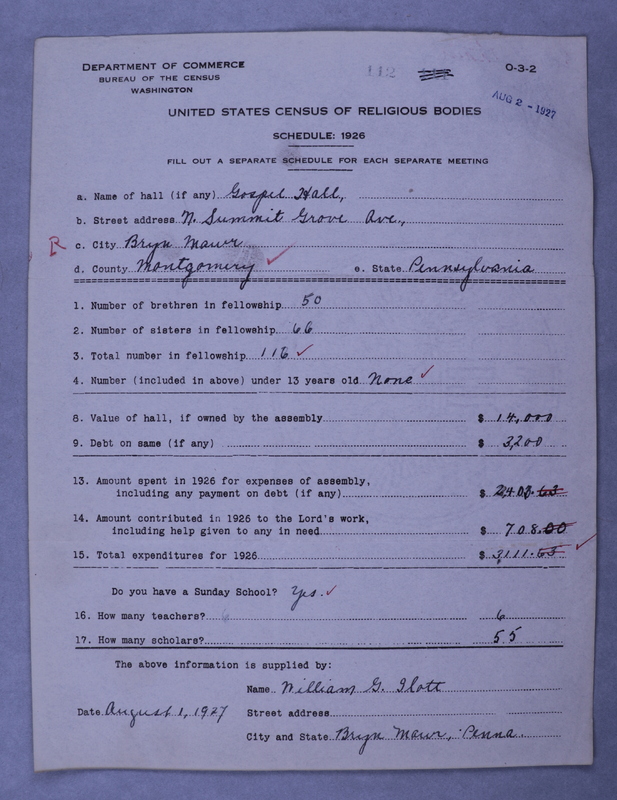 DEPARTMENT OF COMMERCE
BUREAU OF THE CENSUS
WASHINGTON
112
O-3-2
AUG 2 - 1927
UNITED STATES CENSUS OF RELIGIOUS BODIES
SCHEDULE: 1926
FILL OUT A SEPARATE SCHEDULE FOR EACH SEPARATE MEETING
a. Name of hall (if any) Gospel Hall,
b. Street address N. Summit Grove Ave.,
R c. City Bryn Mawr
d. County Montgomery ✓ e. State Pennsylvania
1. Number of brethren in fellowship 50
2. Number of sisters in fellowship 66
3. Total number in fellowship 116 ✓
4. Number (included in above) under 13 years old None ✓
8. Value of hall, if owned by the assembly $ 14,000
9. Debt on same (if any) $ 3,200
13. Amount spent in 1926 for expenses of assembly,
including any payment on debt (if any) $ 2403.63
14. Amount contributed in 1926 to the Lord's work,
including help given to any in need $ 708.00
15. Total expenditures for 1926 $ 3,111.63 ✓
Do you have a Sunday School? Yes. ✓
16. How many teachers? 6 6
17. How many scholars? 55
The above information is supplied by:
Name William G. Ilott
Date August 1, 1927 Street address
City and State Bryn Mawr, Penna.